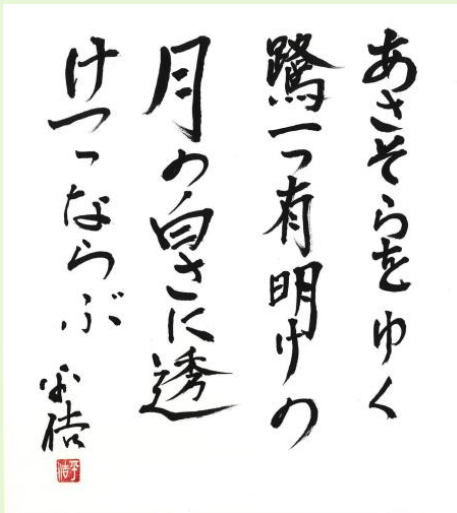 あさそらをゆく
鷺一つ有明けの
月の白さに透
けつつならぶ